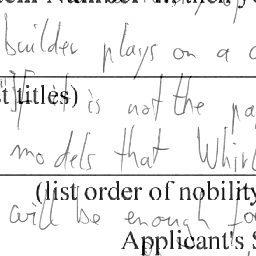 builder plays on a
t titles)
is not the pa
models that Whirl
(list order of nobility
will be enough fo
Applicant's S